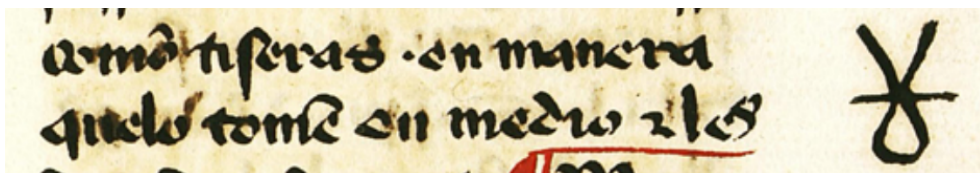 comō tiseras · en manera
quelo tomē en medio ⁊ les